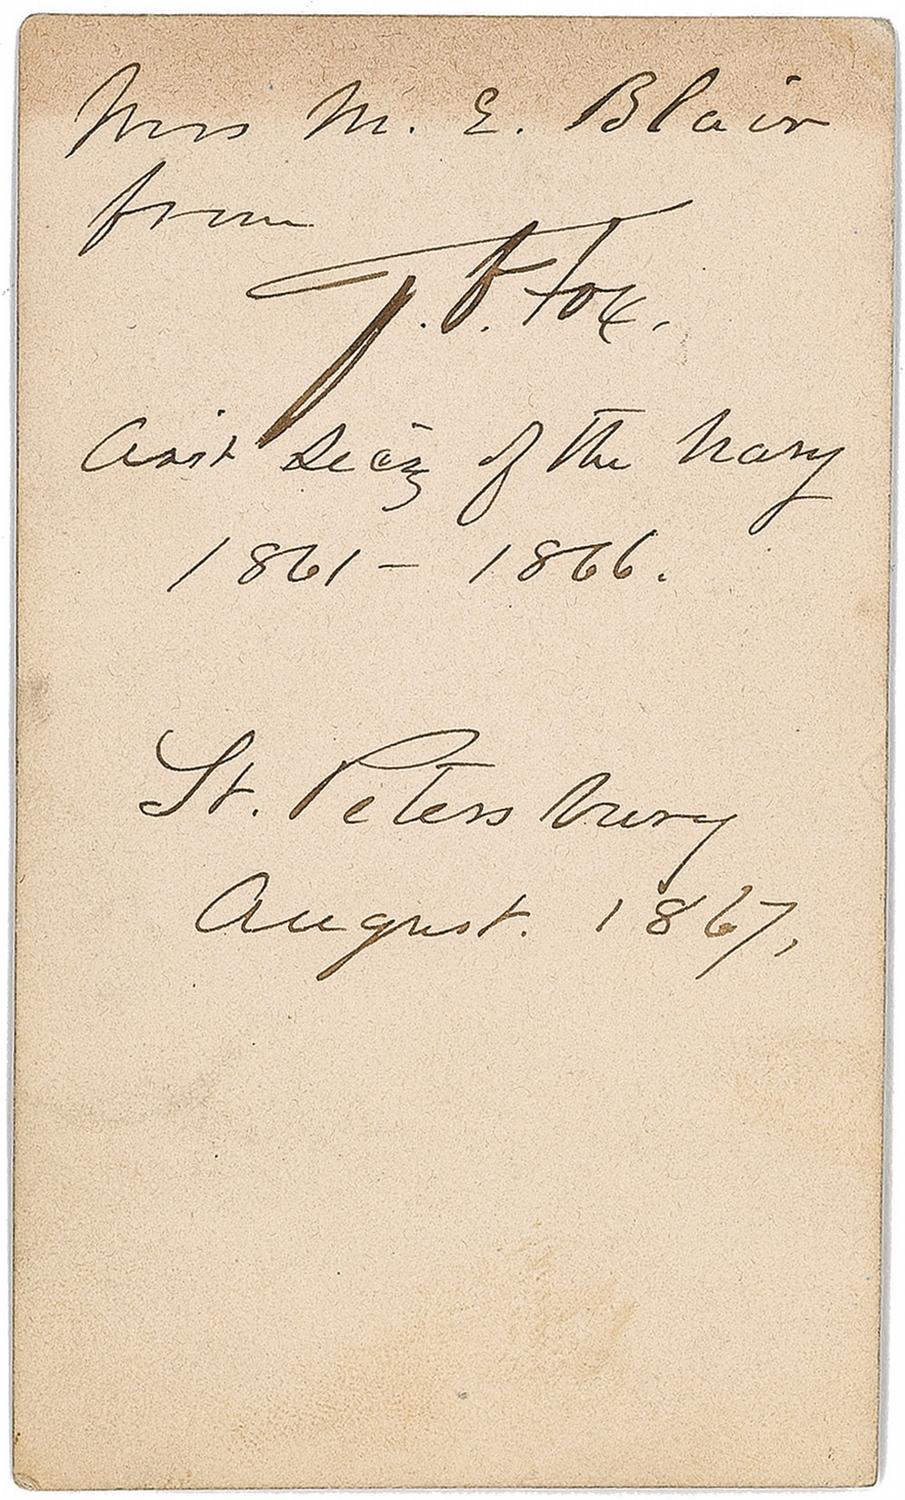 Mrs M. E. Blair
from
G. V. Fox.
Asst Secy of the Navy
1861 - 1866.
St. Petersburg
August. 1867,